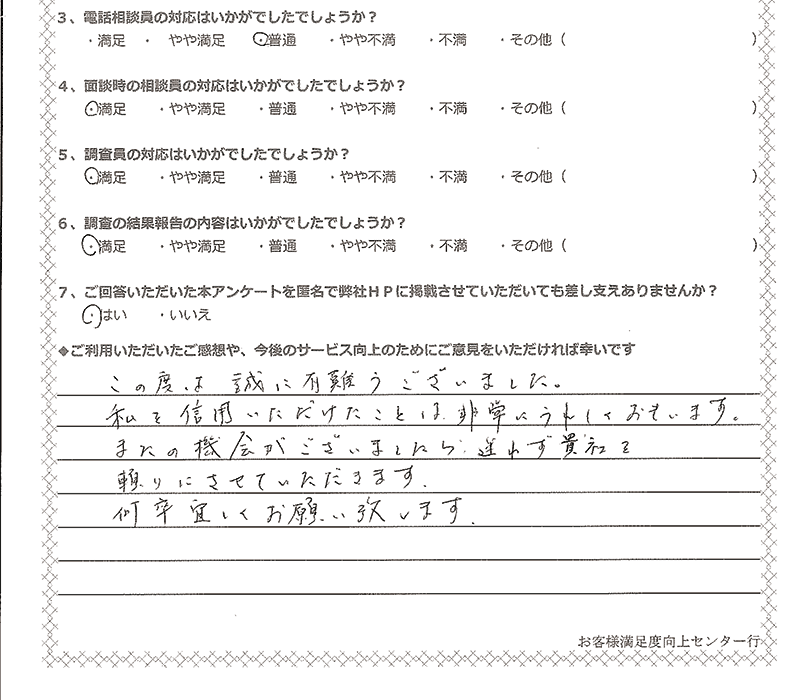 3、電話相談員の対応はいかがでしたでしょうか?
・満足 ・ やや満足 ・普通 ・やや不満 ・不満 ・その他( )
4、面談時の相談員の対応はいかがでしたでしょうか?
・満足 ・やや満足 ・普通 ・やや不満 ・不満 ・その他( )
5、調査員の対応はいかがでしたでしょうか?
・満足 ・やや満足 ・普通 ・やや不満 ・不満 ・その他( )
6、調査の結果報告の内容はいかがでしたでしょうか?
・満足 ・やや満足 ・普通 ・やや不満 ・不満 ・その他( )
7、ご回答いただいた本アンケートを匿名で弊社HPに掲載させていただいても差し支えありませんか?
・はい ・いいえ
◆ご利用いただいたご感想や、今後のサービス向上のためにご意見をいただければ幸いです
この度は 誠に有難うございました。
私を信用いただけたことは非常にうれしくおもいます。
またの機会がございましたら 迷わず貴社を
頼りにさせていただきます.
何卒宜しくお願い致します.
お客様満足度向上センター行